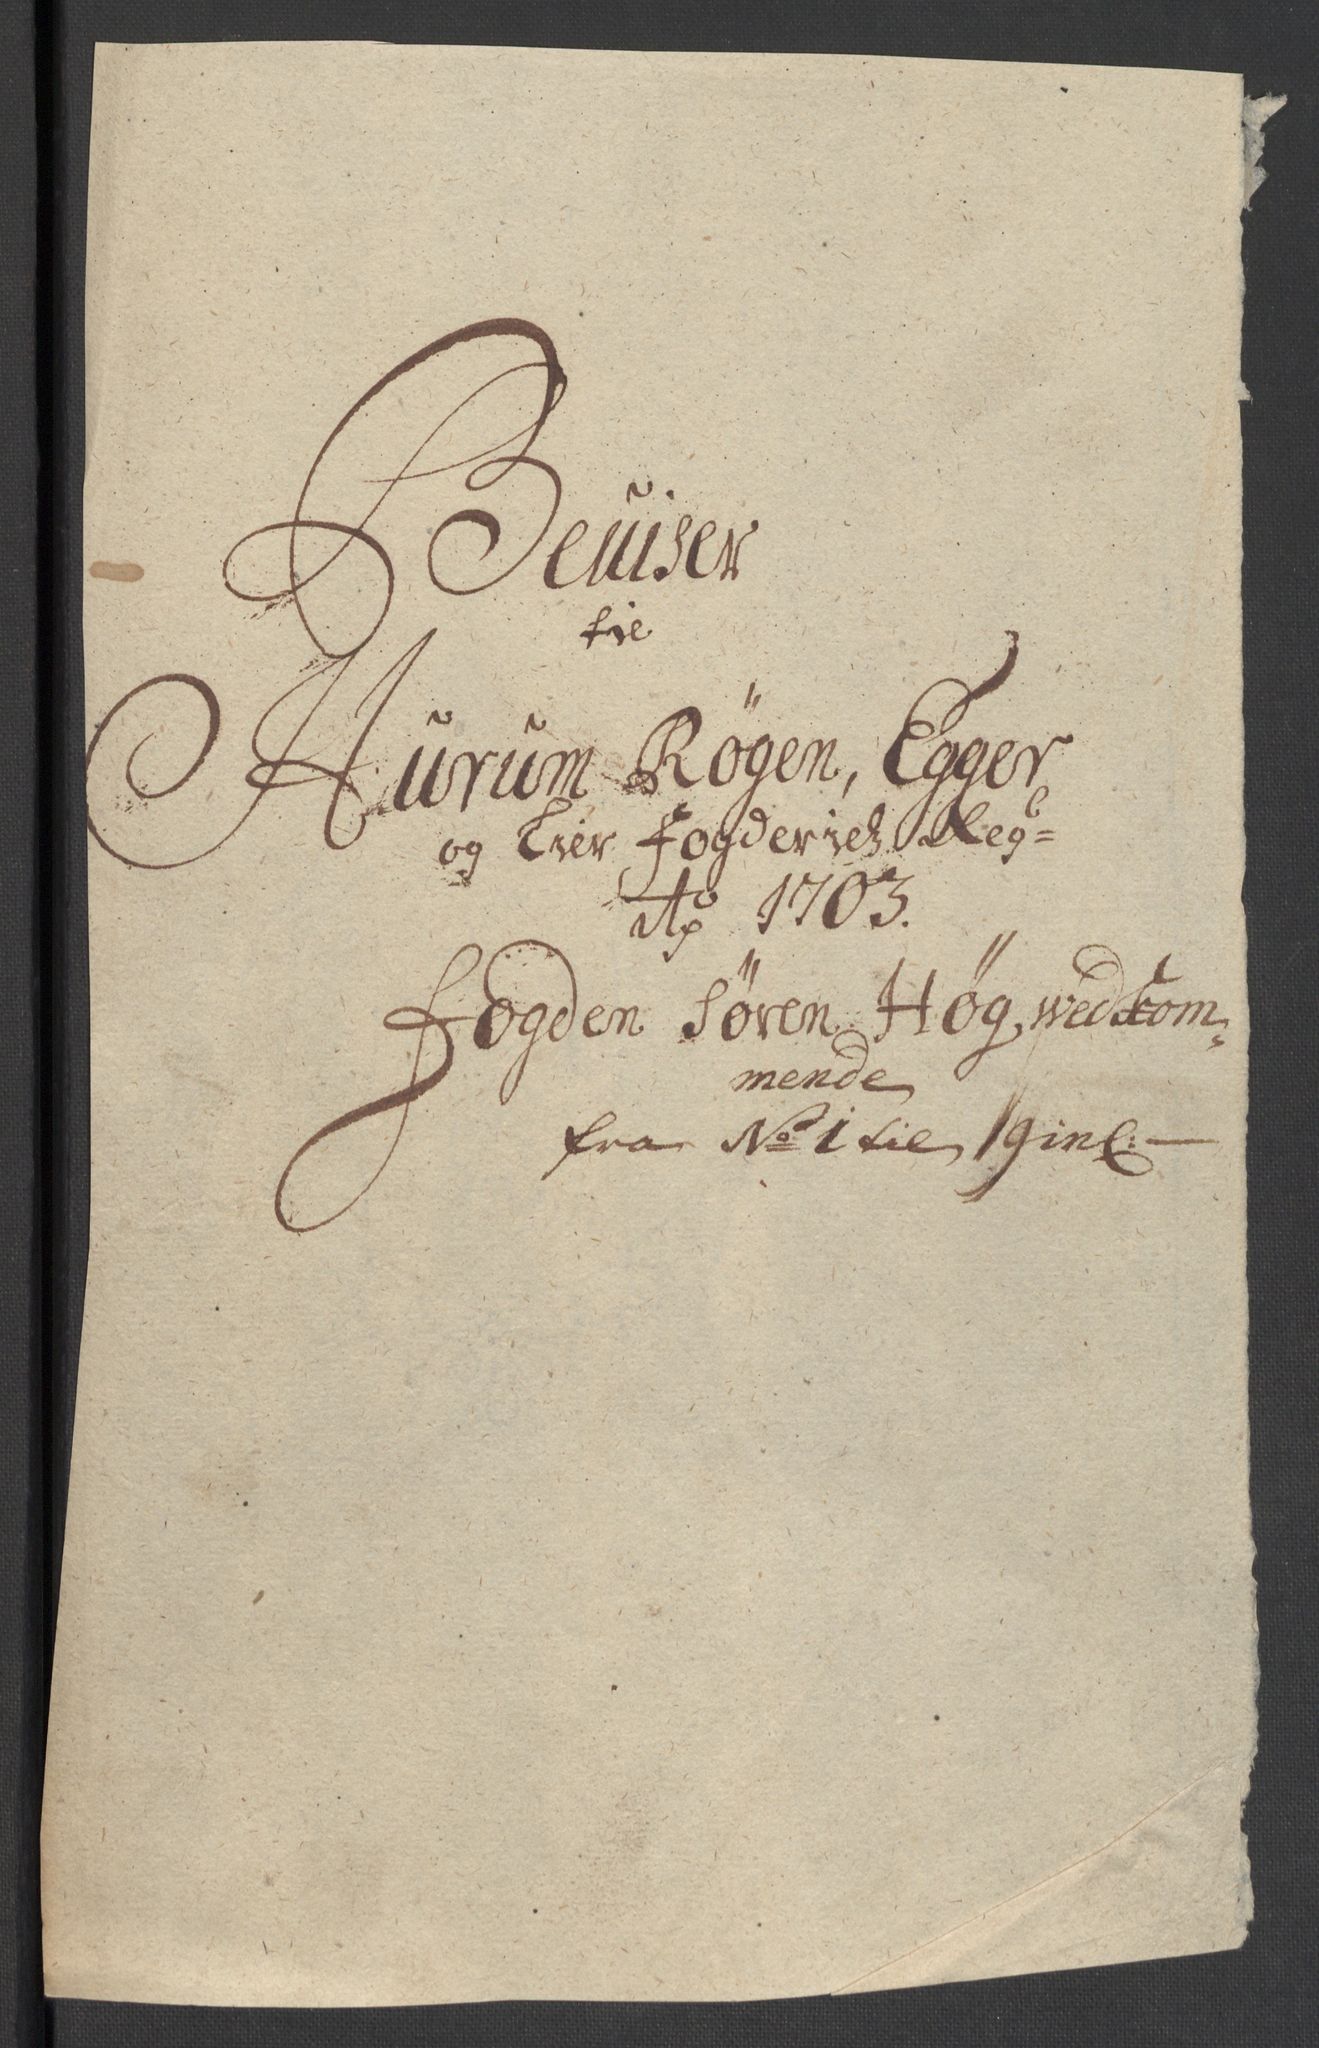 Beuiser
til
Hurum Røgen, Egger
og Lier Fogderietz Reg=
Ao 1703.
Fogden Sören Høg, wedkom=
mende
fra No 1 til 19 incl: